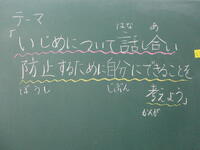 テーマ
はな あ
「いじめについて話し合い
防止するために自分にできることを
ぼうし じぶん
考えよう」
かんが